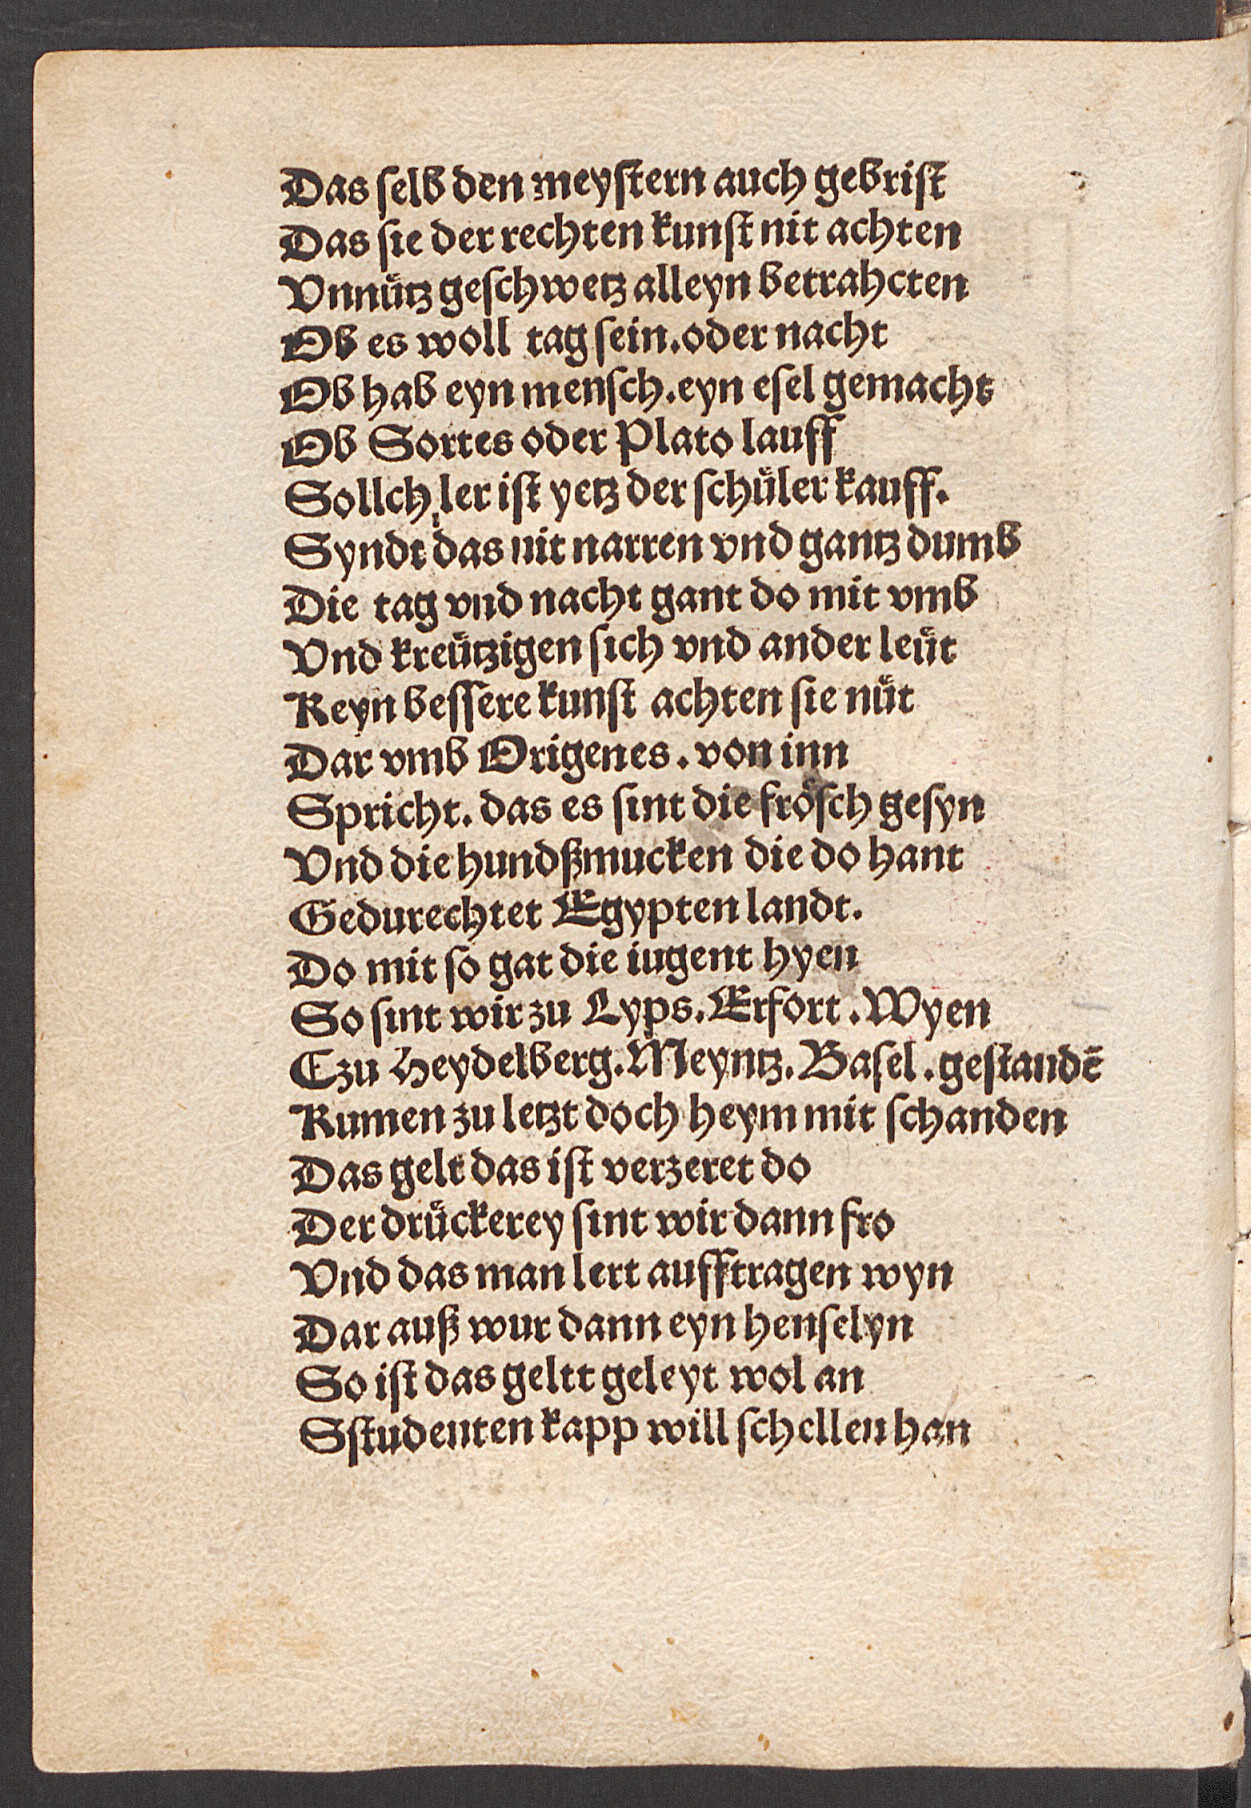 Das ſelb den meyſtern auch gebriſt
Das ſie der rechten kunſt nit achten
Vnnuͤtz geſchwetz alleyn betrahcten
Ob es woll tag ſein. oder nacht
Ob hab eyn menſch. eyn eſel gemacht
Ob Sortes oder Plato lauff
Sollch ler iſt yetz der ſchuͤler kauff.
Syndt das nit narren vnd gantz dumb
Die tag vnd nacht gant do mit vmb
Vnd kreuͤtzigen ſich vnd ander leuͤt
Keyn beſſere kunſt achten ſie nuͤt
Dar vmb Origenes. von inn
Spricht. das es ſint die froͤſch geſyn
Vnd die hundßmucken die do hant
Gedurechtet Egypten landt.
Do mit ſo gat die iugent hyen
So ſint wir zu Lyps. Erfort. Wyen
Czu Heydelberg. Meyntz. Baſel. geſtandē
Kumen zu letzt doch heym mit ſchanden
Das gelt das iſt verzeret do
Der druͤckerey ſint wir dann fro
Vnd das man lert aufftragen wyn
Dar auß wur dann eyn henſelyn
So iſt das geltt geleyt wol an
Sſtudenten kapp will ſchellen han